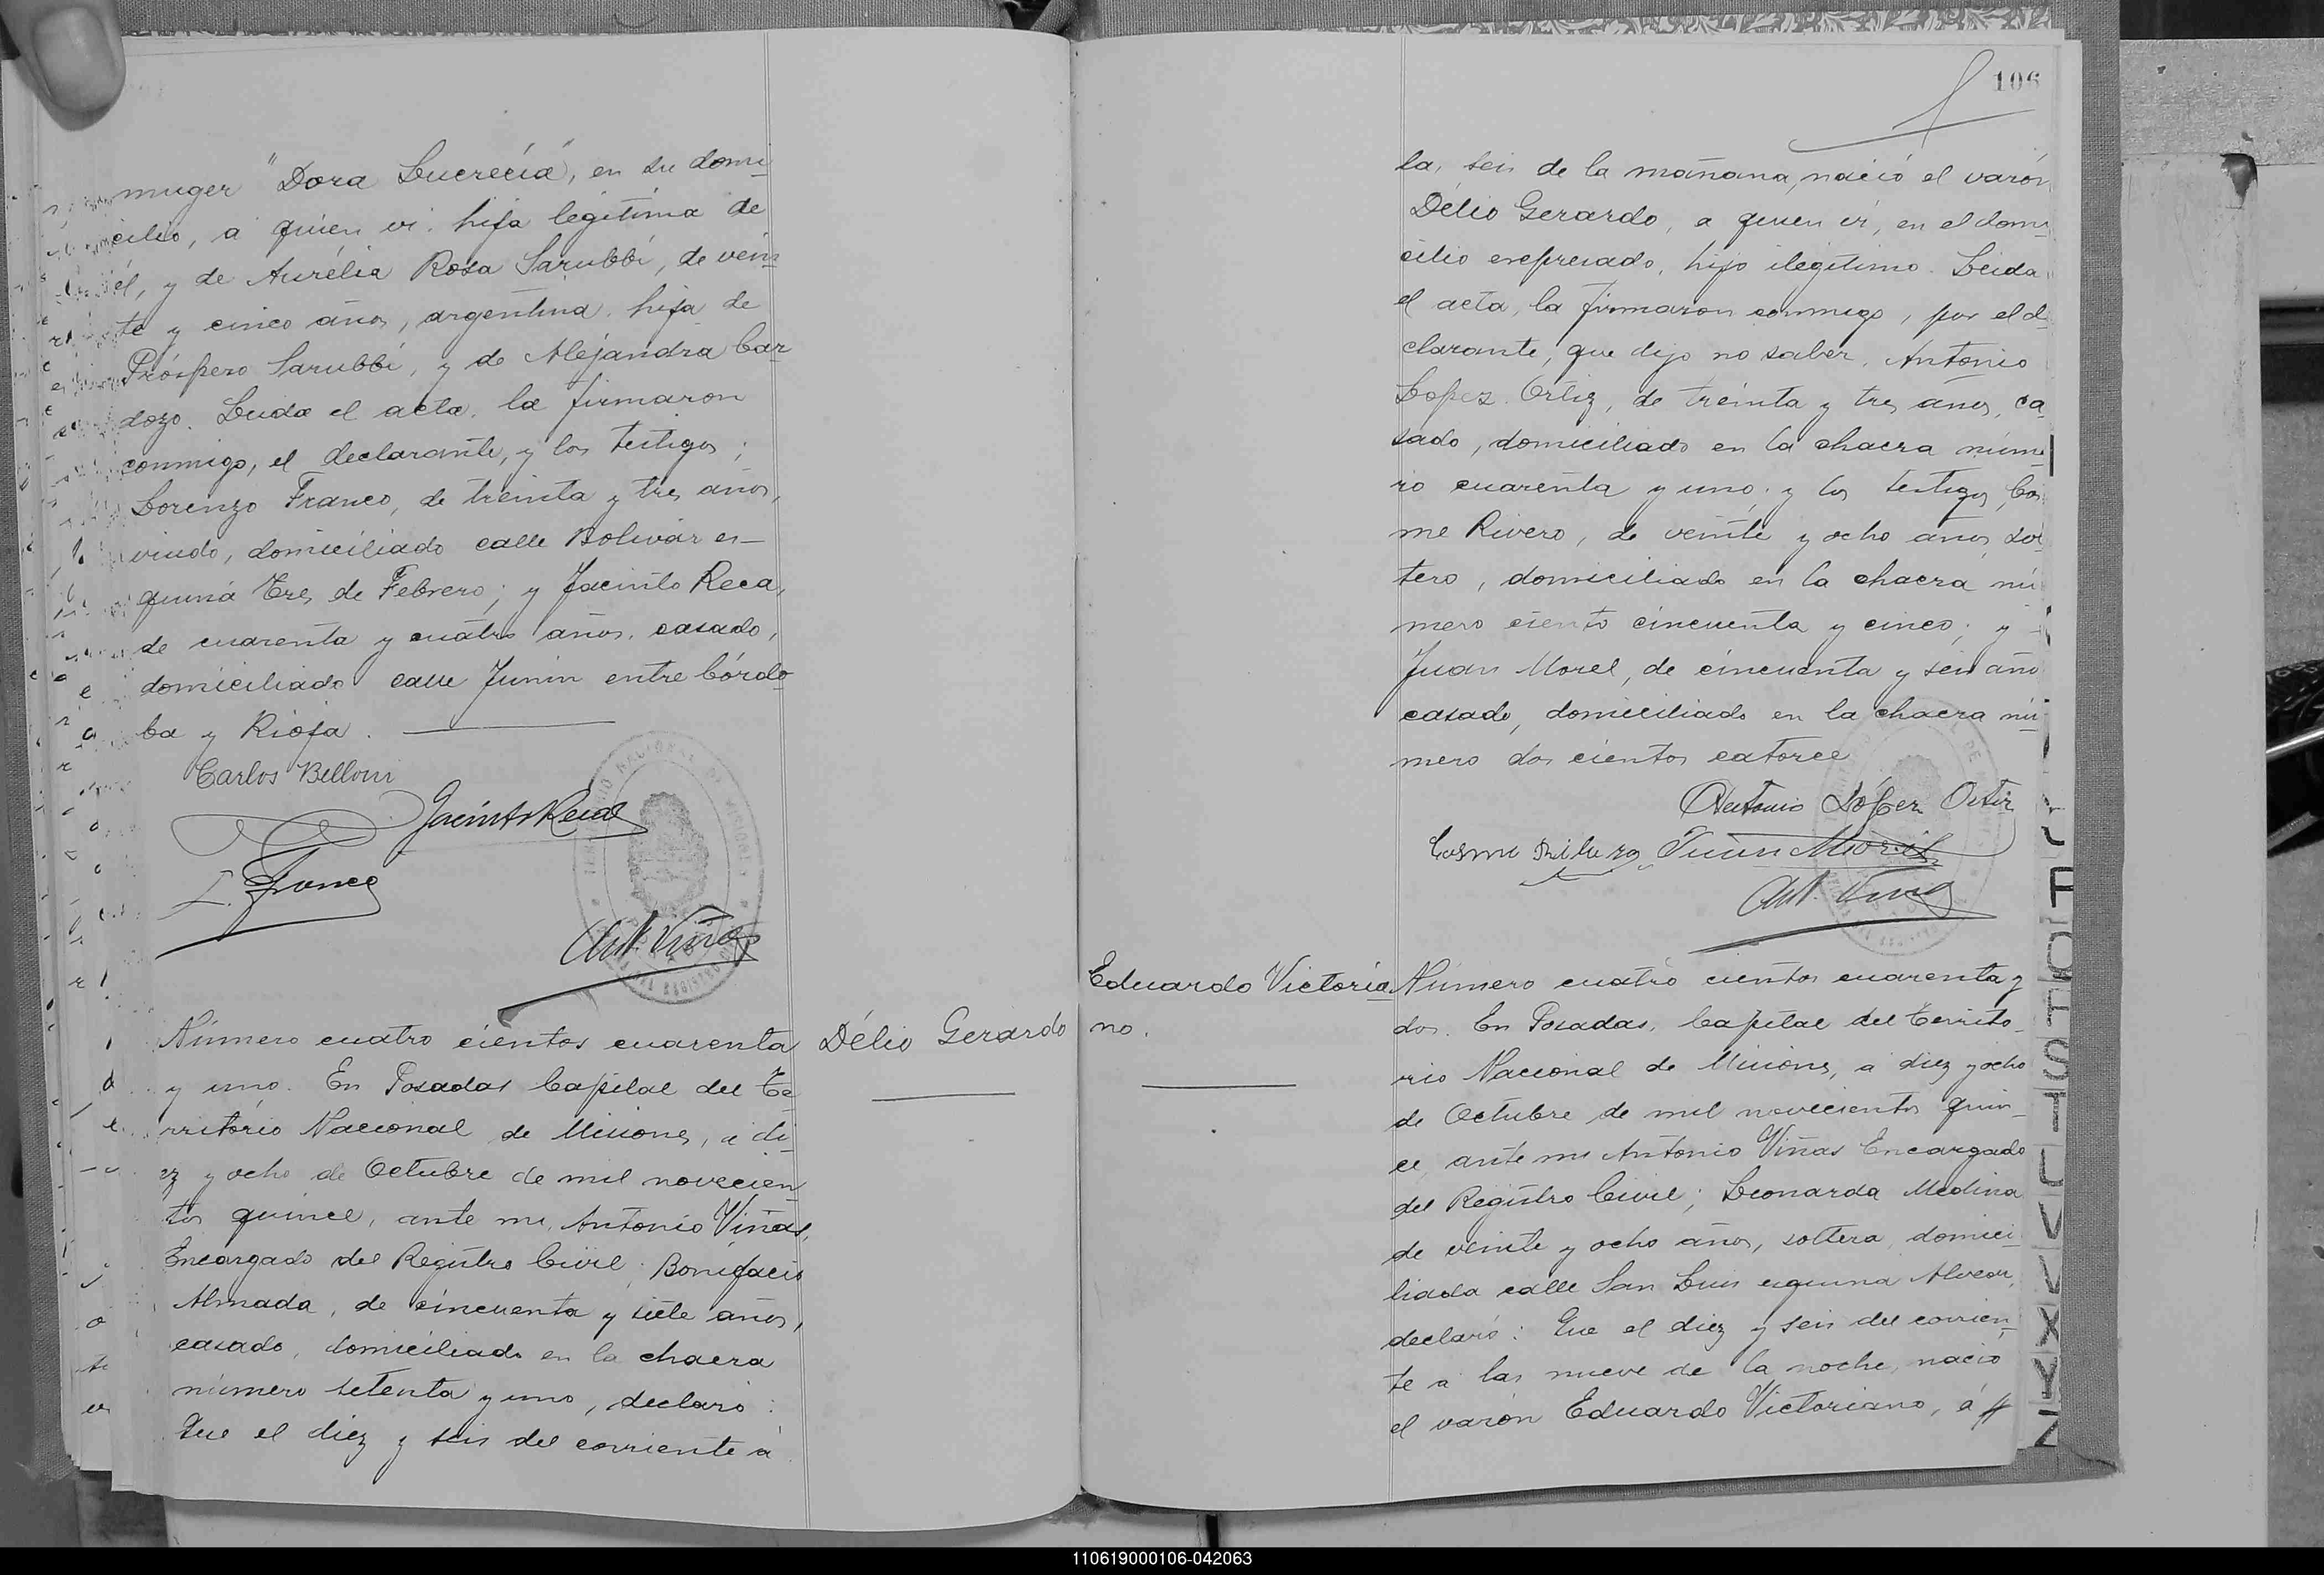 muger "Dora Lucrecia", en su domi-
cilio, a quien vi. hija legitima de
él, y de Aurélia Rosa Sarubbi, de vein-
te y cinco años, argentina. hija de
Próspero Sarubbi, y de Alejandra Car-
dozo. Leida el acta, la firmaron
conmigo, el declarante, y los testigos;
Lorenzo Franco, de treinta y tres años,
viudo, domiciliado calle Bolivar es-
quina Tres de Febrero; y Jacinto Reca,
de cuarenta y cuatro años, casado,
domiciliado calle Junin entre Córdo-
ba y Rioja.
Carlos Belloni
Jacinto Reca
L. Franco
Ant. Viñas
Número cuatro cientos cuarenta
y uno. En Posadas Capital del Te-
rritório Nacional de Misiones, a di-
ez y ocho de Octubre de mil novecien-
tos quince, ante mi, Antonio Viñas,
Encargado del Registro Civil; Bonifacio
Almada, de cincuenta y siete años,
casado, domiciliado en la chacra
número setenta y uno, declaró:
Que el diez y seis del corriente a
Délio Gerardo
106
la, seis de la mañana, nació el varón
Délio Gerardo, a quien vi, en el domi-
cilio expresado, hijo ilegitimo. Leida
el acta, la firmaron conmigo, por el de-
clarante, que dijo no saber, Antonio
Lopez Ortiz, de treinta y tres años, ca-
sado, domiciliado en la chacra núme-
ro cuarenta y uno; y los testigos, Cos-
me Rivero, de veinte y ocho años, sol-
tero, domiciliado en la chacra nú-
mero ciento cincuenta y cinco; y
Juan Morel, de cincuenta y seis años
casado, domiciliado en la chacra nú-
mero dos cientos catorce
Antonio López Ortiz
Cosme Juan Morel
Ant. Viñas
Eduardo Victoria-
no.
Número cuatro cientos cuarenta y
dos. En Posadas, Capital del Territo-
rio Nacional de Misiones, a diez y ocho
de Octubre de mil novecientos quin-
ce, ante mi Antonio Viñas Encargado
del Registro Civil; Leonarda Medina
de veinte y ocho años, soltera, domici-
liada calle San Luis esquina Alvear,
declaró: Que el diez y seis del corrien-
te a las nueve de la noche, nació
el varón Eduardo Victoriano, á
S
T
U
V
X
Y
Z
110619000106-042063